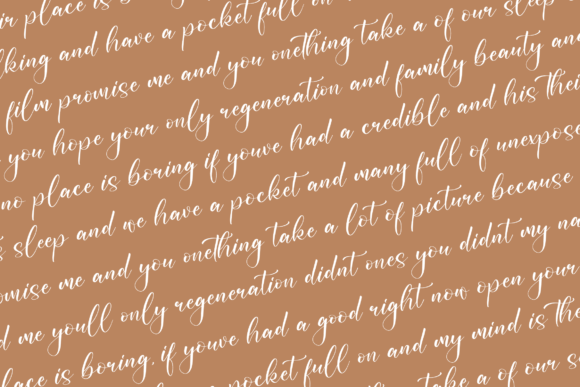 place is
lking and have a pocket full on
film promise me and you onething take a of our sleep
you hope your only regeneration and family beauty and
no place is boring if youve had a credible and his their
sleep and we have a pocket and many full of unexpose
omise me and you onething take a lot of picture because
d me youll only regeneration didnt ones you didnt my na
place is boring, if youve had a good right now open your
pocket full on and my mind is the
take a of our s